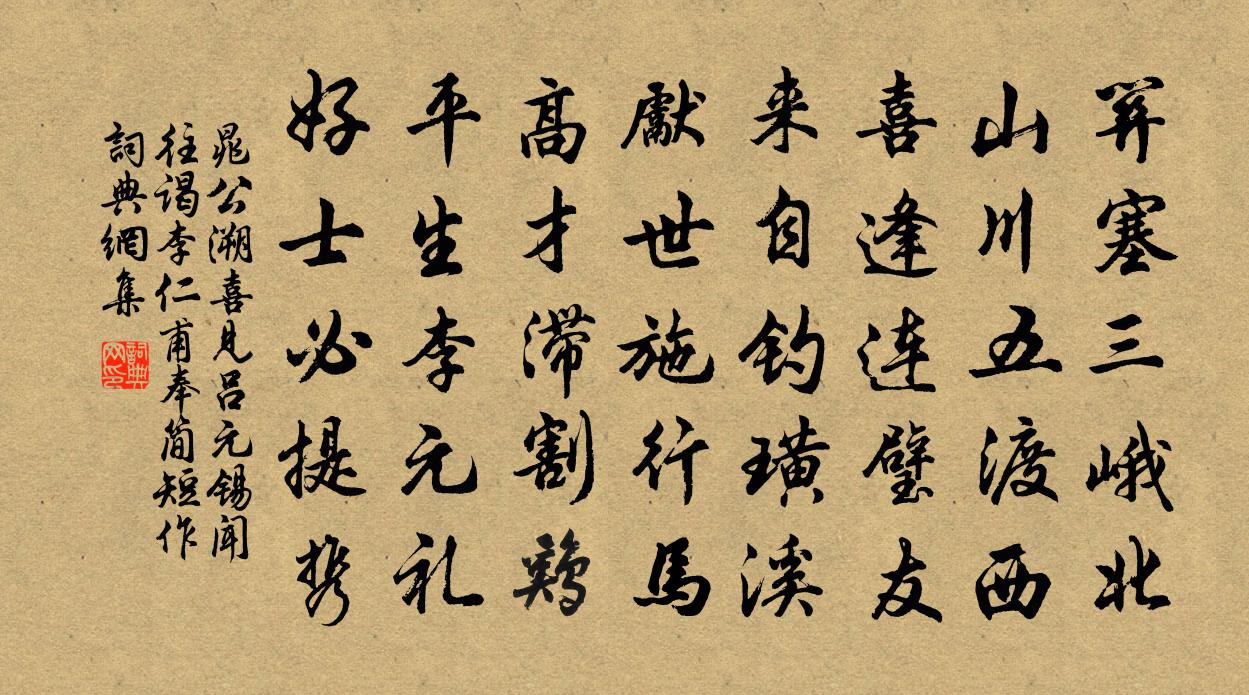 關塞三峨北
山川五渡西
喜逢连璧友
来自钓璜溪
獻世施行馬
高才滞割鷄
平生李元礼
好士必提携
晁公溯喜見吕元锡闻
往谒李仁甫奉简短作
詞典網集
詞典
网印